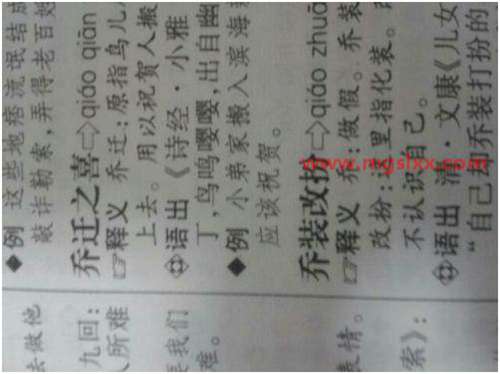 去做他
九回：
人所难
要我们
难。
表情。
索》：
◆例 这些地痞流氓结成
敲诈勒索，弄得老百姓
乔迁之喜⇨qiáo qiān
☞释义 乔迁：原指鸟儿
上去。用以祝贺人搬
语出《诗经·小雅
丁，鸟鸣嘤嘤，出自幽
◆例 小弟家搬入滨海
应该祝贺。
乔装改扮⇨qiáo zhuā
☞释义 乔：做假。乔装
改扮：这里指化装。
不认识自己。
语出 清·文康《儿女
“自己却乔装打扮的
www.mgslxx.com